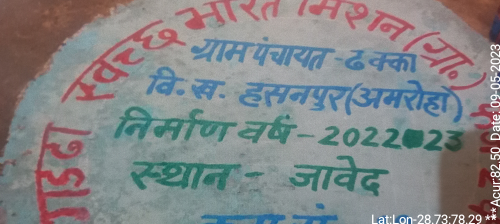 स्वच्छ भारत मिशन (ग्रा.)
ग्राम पंचायत - ढक्का
वि. ख. हसनपुर (अमरोहा)
निर्माण वर्ष - 2022-23
स्थान - जावेद
Lat:Lon-28.73:78.29
Date: 09-05-2023